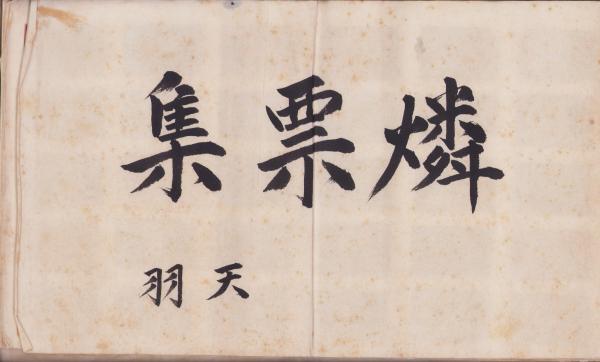 燐票集
天羽